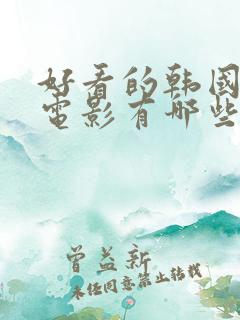 好看的韩国
電影有哪些
曾益新
未经同意禁止转载